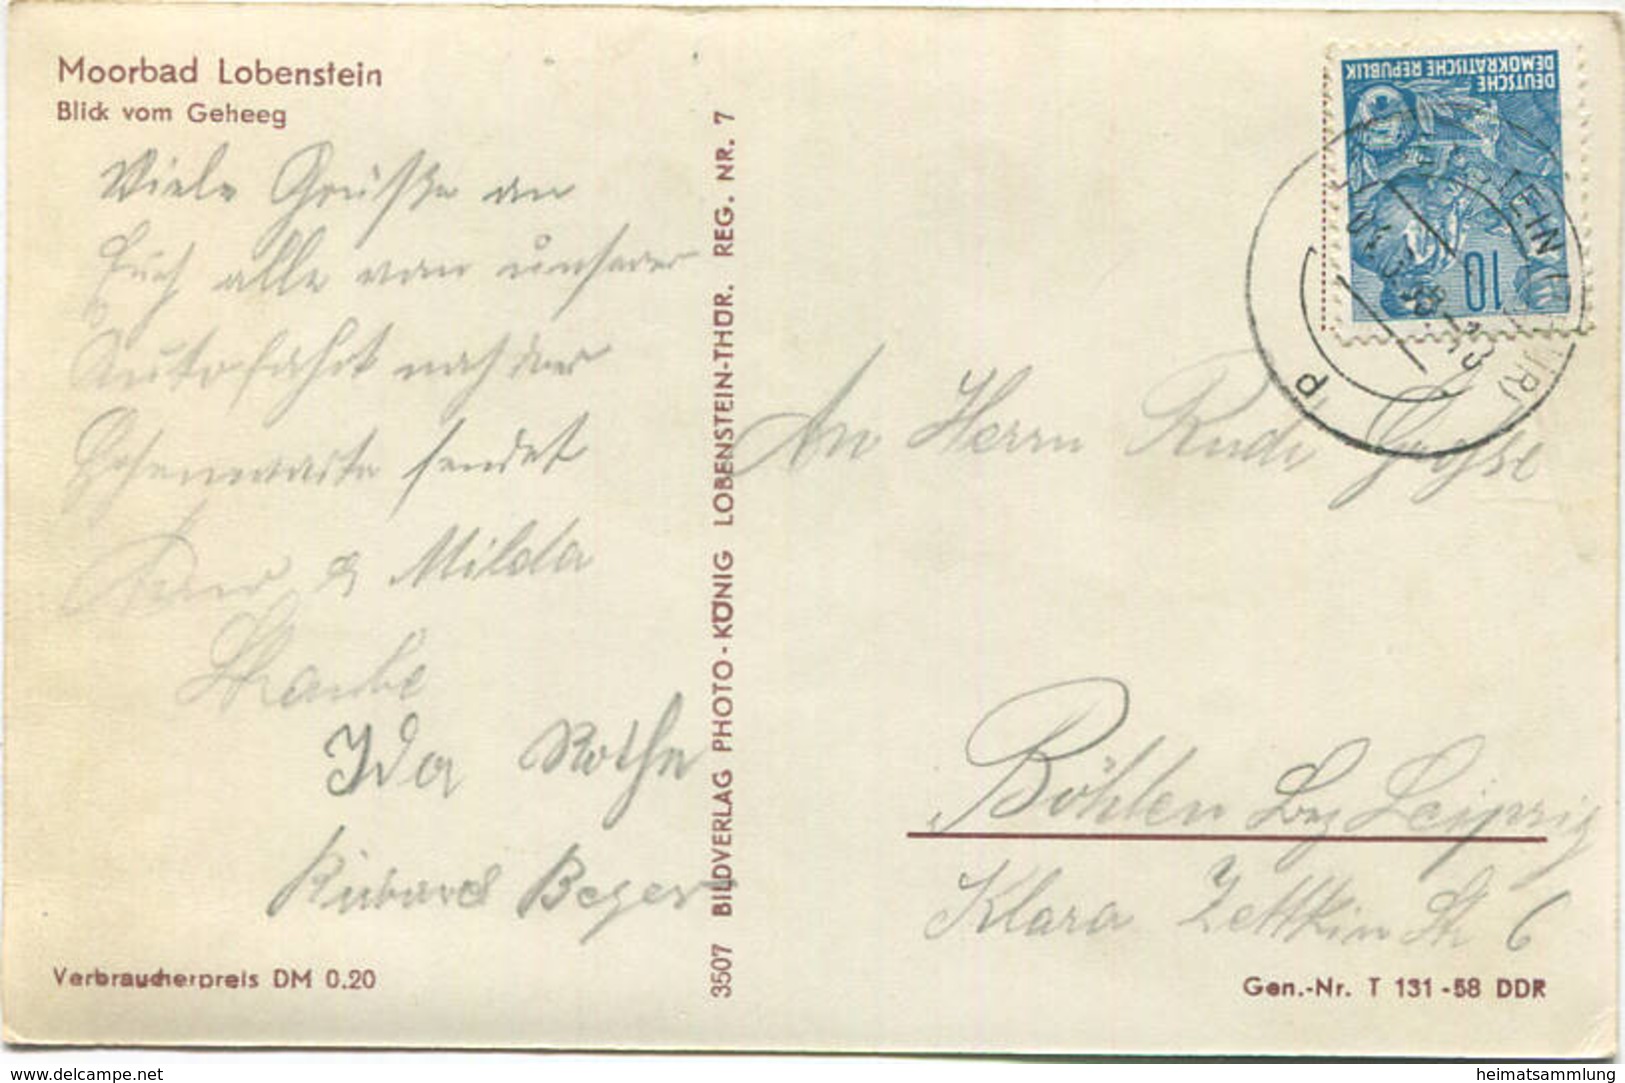 Moorbad Lobenstein
Blick vom Geheeg
Viele Grüße an
Euch alle von unserer
Autofahrt nach der
Hohenwarte sendet
& Milda
Straube
Ida Rothe
Richard Beyer
Verbraucherpreis DM 0.20
3507 BILDVERLAG PHOTO-KÖNIG LOBENSTEIN-THÜR. REG. NR. 7
DEUTSCHE
DEMOKRATISCHE REPUBLIK
10
An Herrn Rudi Grosse
Böhlen Bez Leipzig
Klara Zettkin Str 6
Gen.-Nr. T 131-58 DDR
www.delcampe.net
heimatsammlung